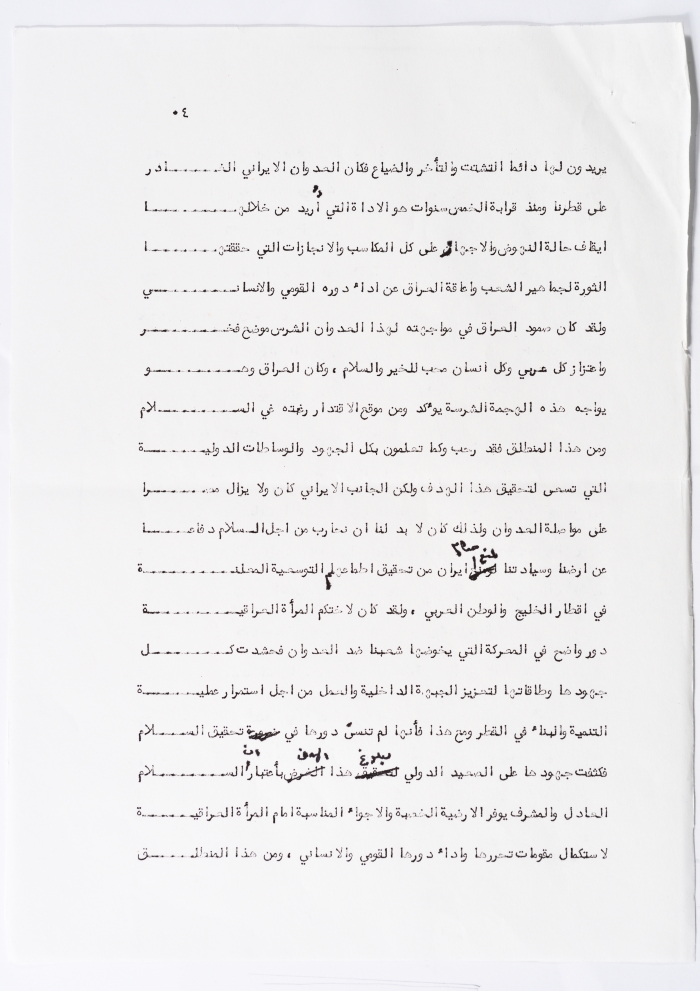 ٠٤
يريدون لها دائما التشتت والتأخر والضياع فكان العدوان الايراني الغـــــادر
على قطرنا ومنذ قرابة الخمس سنوات هو الاداة التي أُريد من خلالهـــــــا
ايقاف حالة النهوض والاجهاز على كل المكاسب والانجازات التي حققتهـــــــا
الثورة لجماهير الشعب واعاقة العراق عن اداء دوره القومي والانسانـــــــي
ولقد كان صمود العراق في مواجهته لهذا العدوان الشرس موضع فخـــــــر
واعتزاز كل عربي وكل انسان محب للخير والسلام ، وكان العراق وهـــــــو
يواجه هذه الهجمة الشرسة يؤكد ومن موقع الاقتدار رغبته في الســـــــلام
ومن هذا المنطلق فقد رحب وكما تعلمون بكل الجهود والوساطات الدوليـــــــة
التي تسعى لتحقيق هذا الهدف ولكن الجانب الايراني كان ولا يزال مصـــــــرا
على مواصلة العدوان ولذلك كان لا بد لنا ان نحارب من اجل السلام دفاعـــــــا
عن ارضنا وسيادتنا لمنع حكام ايران من تحقيق اطماعهم التوسعية المعلنـــــــة
في اقطار الخليج والوطن العربي ، ولقد كان لاختكم المرأة العراقيـــــــة
دور واضح في المعركة التي يخوضها شعبنا ضد العدوان فحشدت كـــــــل
جهودها وطاقاتها لتعزيز الجبهة الداخلية والعمل من اجل استمرار عمليـــــــة
التنمية والبناء في القطر ومع هذا فأنها لم تنسَ دورها في ضرورة تحقيق الســـــــلام
فكثفت جهودها على الصعيد الدولي لتحقيق بلوغ هذا الغرض الهدف بأعتبار ان الســـــــلام
العادل والمشرف يوفر الارضية الخصبة والاجواء المناسبة امام المرأة العراقيـــــــة
لاستكمال مقومات تحررها واداء دورها القومي والانساني ، ومن هذا المنطلـــــــق